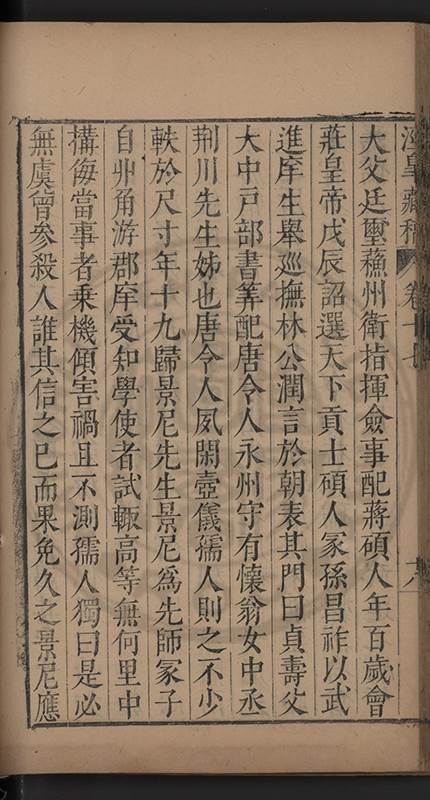 涇皋藏稿 卷十七 十八
大父廷璽蘓州衛指揮僉事配蔣碩人年百歲會
莊皇帝戊辰詔選天下貢士碩人冢孫昌祚以武
進庠生舉巡撫林公潤言於朝表其門曰貞壽父
大中戸部書筭配唐令人永州守有懷翁女中丞
荆川先生姊也唐令人夙閑壼儀孺人則之不少
軼於尺寸年十九歸景尼先生景尼爲先師冢子
自丱角游郡庠受知學使者試輙高等無何里中
搆侮當事者乗機傾害禍且不測孺人獨曰是必
無虞曾參殺人誰其信之已而果免久之景尼應